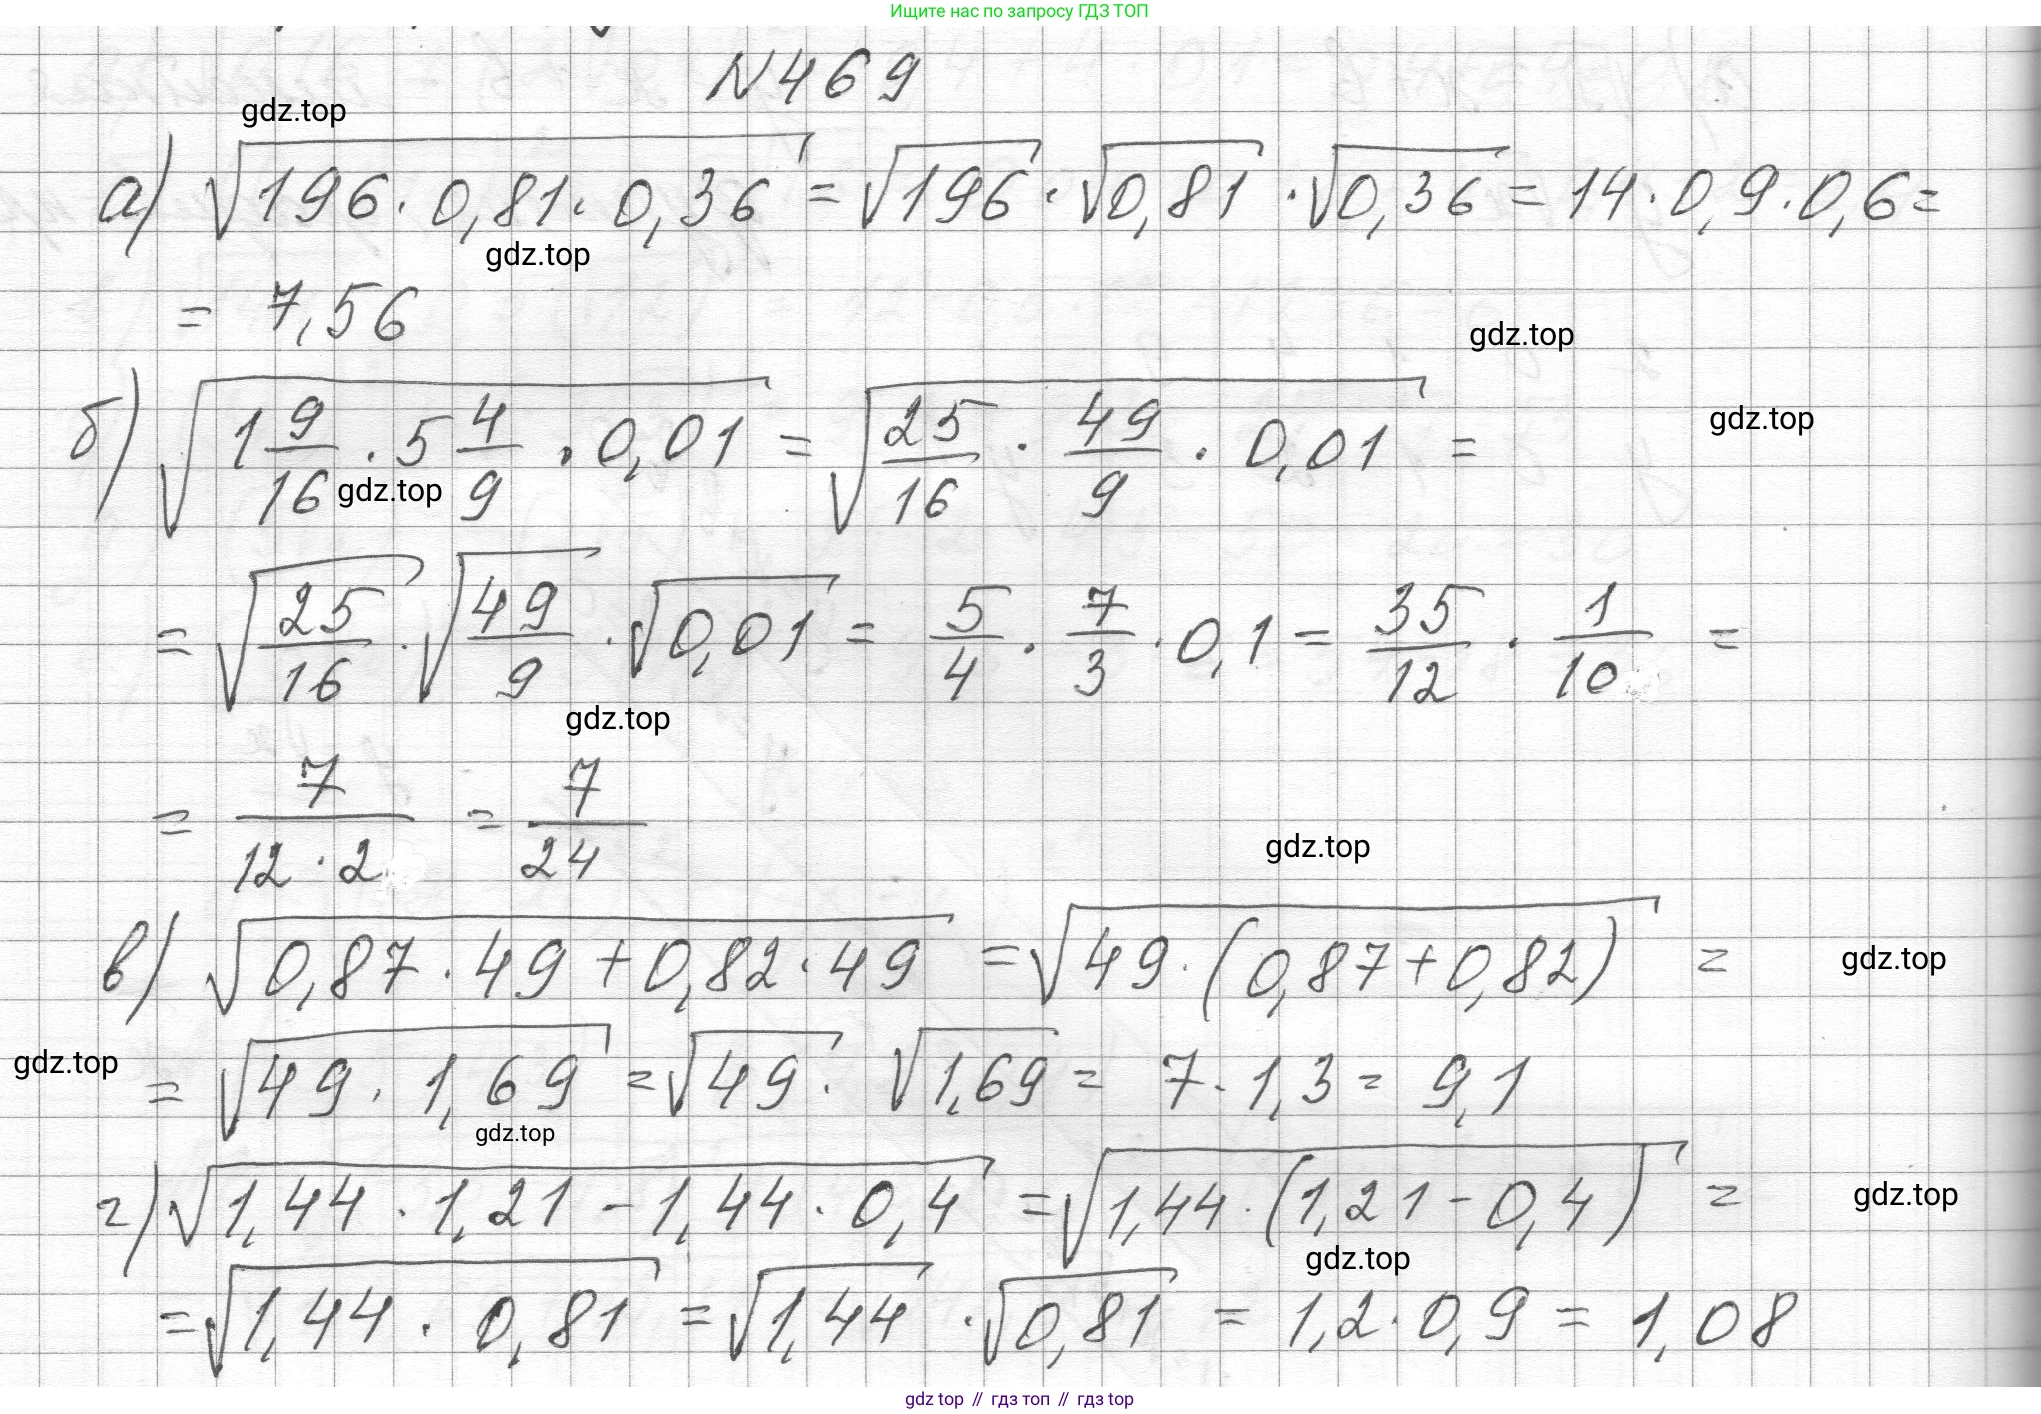 Ищите нас по запросу ГДЗ ТОП
N 469
gdz.top
а) √(196 · 0,81 · 0,36) = √196 · √0,81 · √0,36 = 14 · 0,9 · 0,6 =
gdz.top
= 7,56
gdz.top
б) √(1 9/16 · 5 4/9 · 0,01) = √(25/16 · 49/9 · 0,01) =
gdz.top
gdz.top
= √(25/16) · √(49/9) · √0,01 = 5/4 · 7/3 · 0,1 = 35/12 · 1/10 =
gdz.top
= 7/(12 · 2) = 7/24
gdz.top
в) √(0,87 · 49 + 0,82 · 49) = √(49 · (0,87 + 0,82)) =
gdz.top
gdz.top
= √(49 · 1,69) = √49 · √1,69 = 7 · 1,3 = 9,1
gdz.top
г) √(1,44 · 1,21 - 1,44 · 0,4) = √(1,44 · (1,21 - 0,4)) =
gdz.top
gdz.top
= √(1,44 · 0,81) = √1,44 · √0,81 = 1,2 · 0,9 = 1,08
gdz top // гдз топ // гдз top